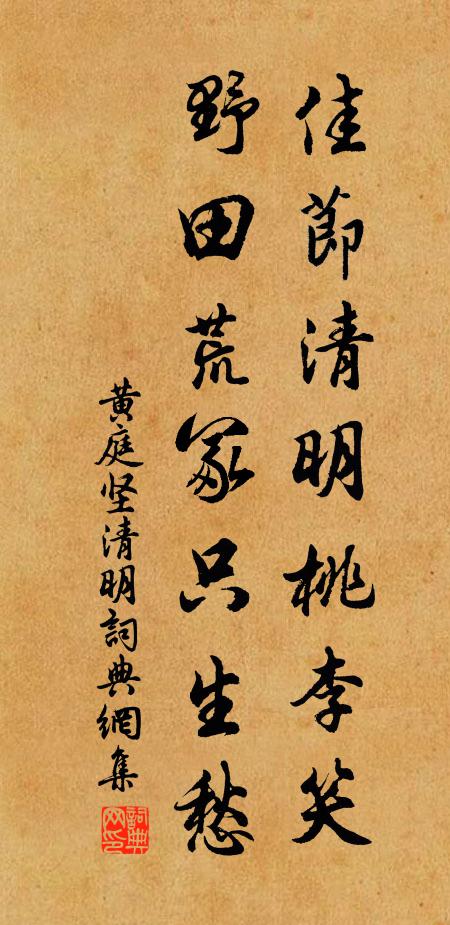 佳節清明桃李笑
野田荒冢只生愁
黄庭坚清明詞典網集
詞典
网印